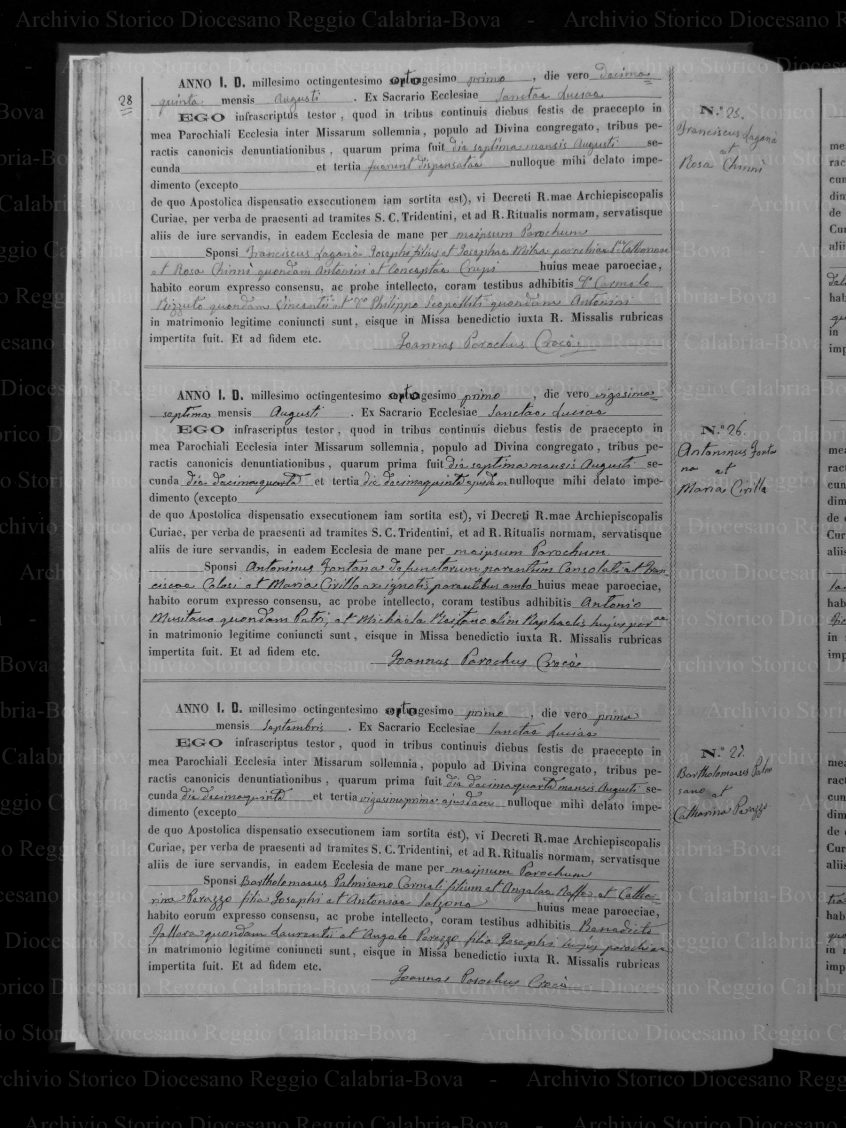 28
ANNO I. D. millesimo octingentesimo septuagesimo primo, die vero decima
quinta mensis Augusti. Ex Sacrario Ecclesiae Sanctae Luciae
EGO infrascriptus testor, quod in tribus continuis diebus festis de praecepto in
mea Parochiali Ecclesia inter Missarum sollemnia, populo ad Divina congregato, tribus pe-
ractis canonicis denuntiationibus, quarum prima fuit die septima mensis Augusti se-
cunda et tertia fuerunt dispensatae nulloque mihi delato impe-
dimento (excepto
de quo Apostolica dispensatio exsecutionem iam sortita est), vi Decreti R.mae Archiepiscopalis
Curiae, per verba de praesenti ad tramites S. C. Tridentini, et ad R. Ritualis normam, servatisque
aliis de iure servandis, in eadem Ecclesia de mane per meipsum Parochum
Sponsi Franciscus Laganà Josephi filius et Josephae parochiae
et Rosa Chinnì quondam Antonini et Conceptae Crupi huius meae paroeciae,
habito eorum expresso consensu, ac probe intellecto, coram testibus adhibitis D. Carmelo
Rizzuto quondam Vincentii et D. Philippo Scopelliti quondam Antonini
in matrimonio legitime coniuncti sunt, eisque in Missa benedictio iuxta R. Missalis rubricas
impertita fuit. Et ad fidem etc. Joannes Parochus Crocè
N.º 25.
Franciscus Laganà
et
Rosa Chinnì
ANNO I. D. millesimo octingentesimo septuagesimo primo, die vero vigesima
septima mensis Augusti. Ex Sacrario Ecclesiae Sanctae Luciae
EGO infrascriptus testor, quod in tribus continuis diebus festis de praecepto in
mea Parochiali Ecclesia inter Missarum sollemnia, populo ad Divina congregato, tribus pe-
ractis canonicis denuntiationibus, quarum prima fuit die septima mensis Augusti se-
cunda die decimaquarta et tertia die decimaquinta ejusdem nulloque mihi delato impe-
dimento (excepto
de quo Apostolica dispensatio exsecutionem iam sortita est), vi Decreti R.mae Archiepiscopalis
Curiae, per verba de praesenti ad tramites S. C. Tridentini, et ad R. Ritualis normam, servatisque
aliis de iure servandis, in eadem Ecclesia de mane per meipsum Parochum
Sponsi Antoninus Fontana defunctorum parentium Consolati et Fran-
ciscae Calasi et Maria Civilla ex ignotis parentibus ambo huius meae paroeciae,
habito eorum expresso consensu, ac probe intellecto, coram testibus adhibitis Antonio
Musitano quondam Petri, et Michaele olim Raphaelis hujus par.ae
in matrimonio legitime coniuncti sunt, eisque in Missa benedictio iuxta R. Missalis rubricas
impertita fuit. Et ad fidem etc. Joannes Parochus Crocè
N.º 26.
Antoninus Fonta
na et
Maria Civilla
ANNO I. D. millesimo octingentesimo septuagesimo primo, die vero prima
mensis Septembris. Ex Sacrario Ecclesiae Sanctae Luciae
EGO infrascriptus testor, quod in tribus continuis diebus festis de praecepto in
mea Parochiali Ecclesia inter Missarum sollemnia, populo ad Divina congregato, tribus pe-
ractis canonicis denuntiationibus, quarum prima fuit die decimaquarta mensis Augusti se-
cunda die decimaquinta et tertia vigesimaprima ejusdem nulloque mihi delato impe-
dimento (excepto
de quo Apostolica dispensatio exsecutionem iam sortita est), vi Decreti R.mae Archiepiscopalis
Curiae, per verba de praesenti ad tramites S. C. Tridentini, et ad R. Ritualis normam, servatisque
aliis de iure servandis, in eadem Ecclesia de mane per meipsum Parochum
Sponsi Bartholomaeus Palmisano Carmeli filium et Angelae Raffa et Catha-
rina Parazzo filia Josephi et Antoniae Salzone huius meae paroeciae,
habito eorum expresso consensu, ac probe intellecto, coram testibus adhibitis Benedicto
quondam Laurentii et Angelo Parazzo filio Josephi hujus parochiae
in matrimonio legitime coniuncti sunt, eisque in Missa benedictio iuxta R. Missalis rubricas
impertita fuit. Et ad fidem etc. Joannes Parochus Crocè
N.º 27.
Bartholomaeus Palmi
sano et
Catharina Parazzo